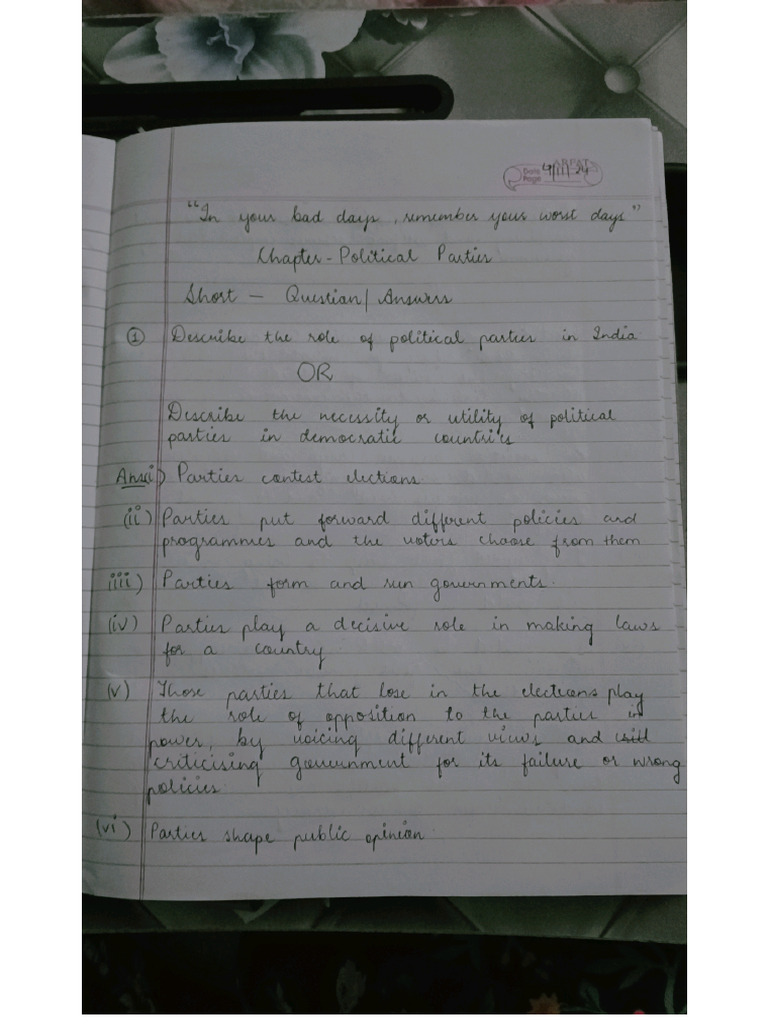 ARPAT
Date 4/11/24
Page
"In your bad days, remember your worst days"
Chapter - Political Parties
Short - Question/Answers
① Describe the role of political parties in India
OR
Describe the necessity or utility of political
parties in democratic countries
Ans(i) Parties contest elections
(ii) Parties put forward different policies and
programmes and the voters choose from them
iii) Parties form and run governments.
(iv) Parties play a decisive role in making laws
for a country
(v) Those parties that lose in the elections play
the role of opposition to the parties in
power, by voicing different views and
criticising government for its failure or wrong
policies
(vi) Parties shape public opinion.